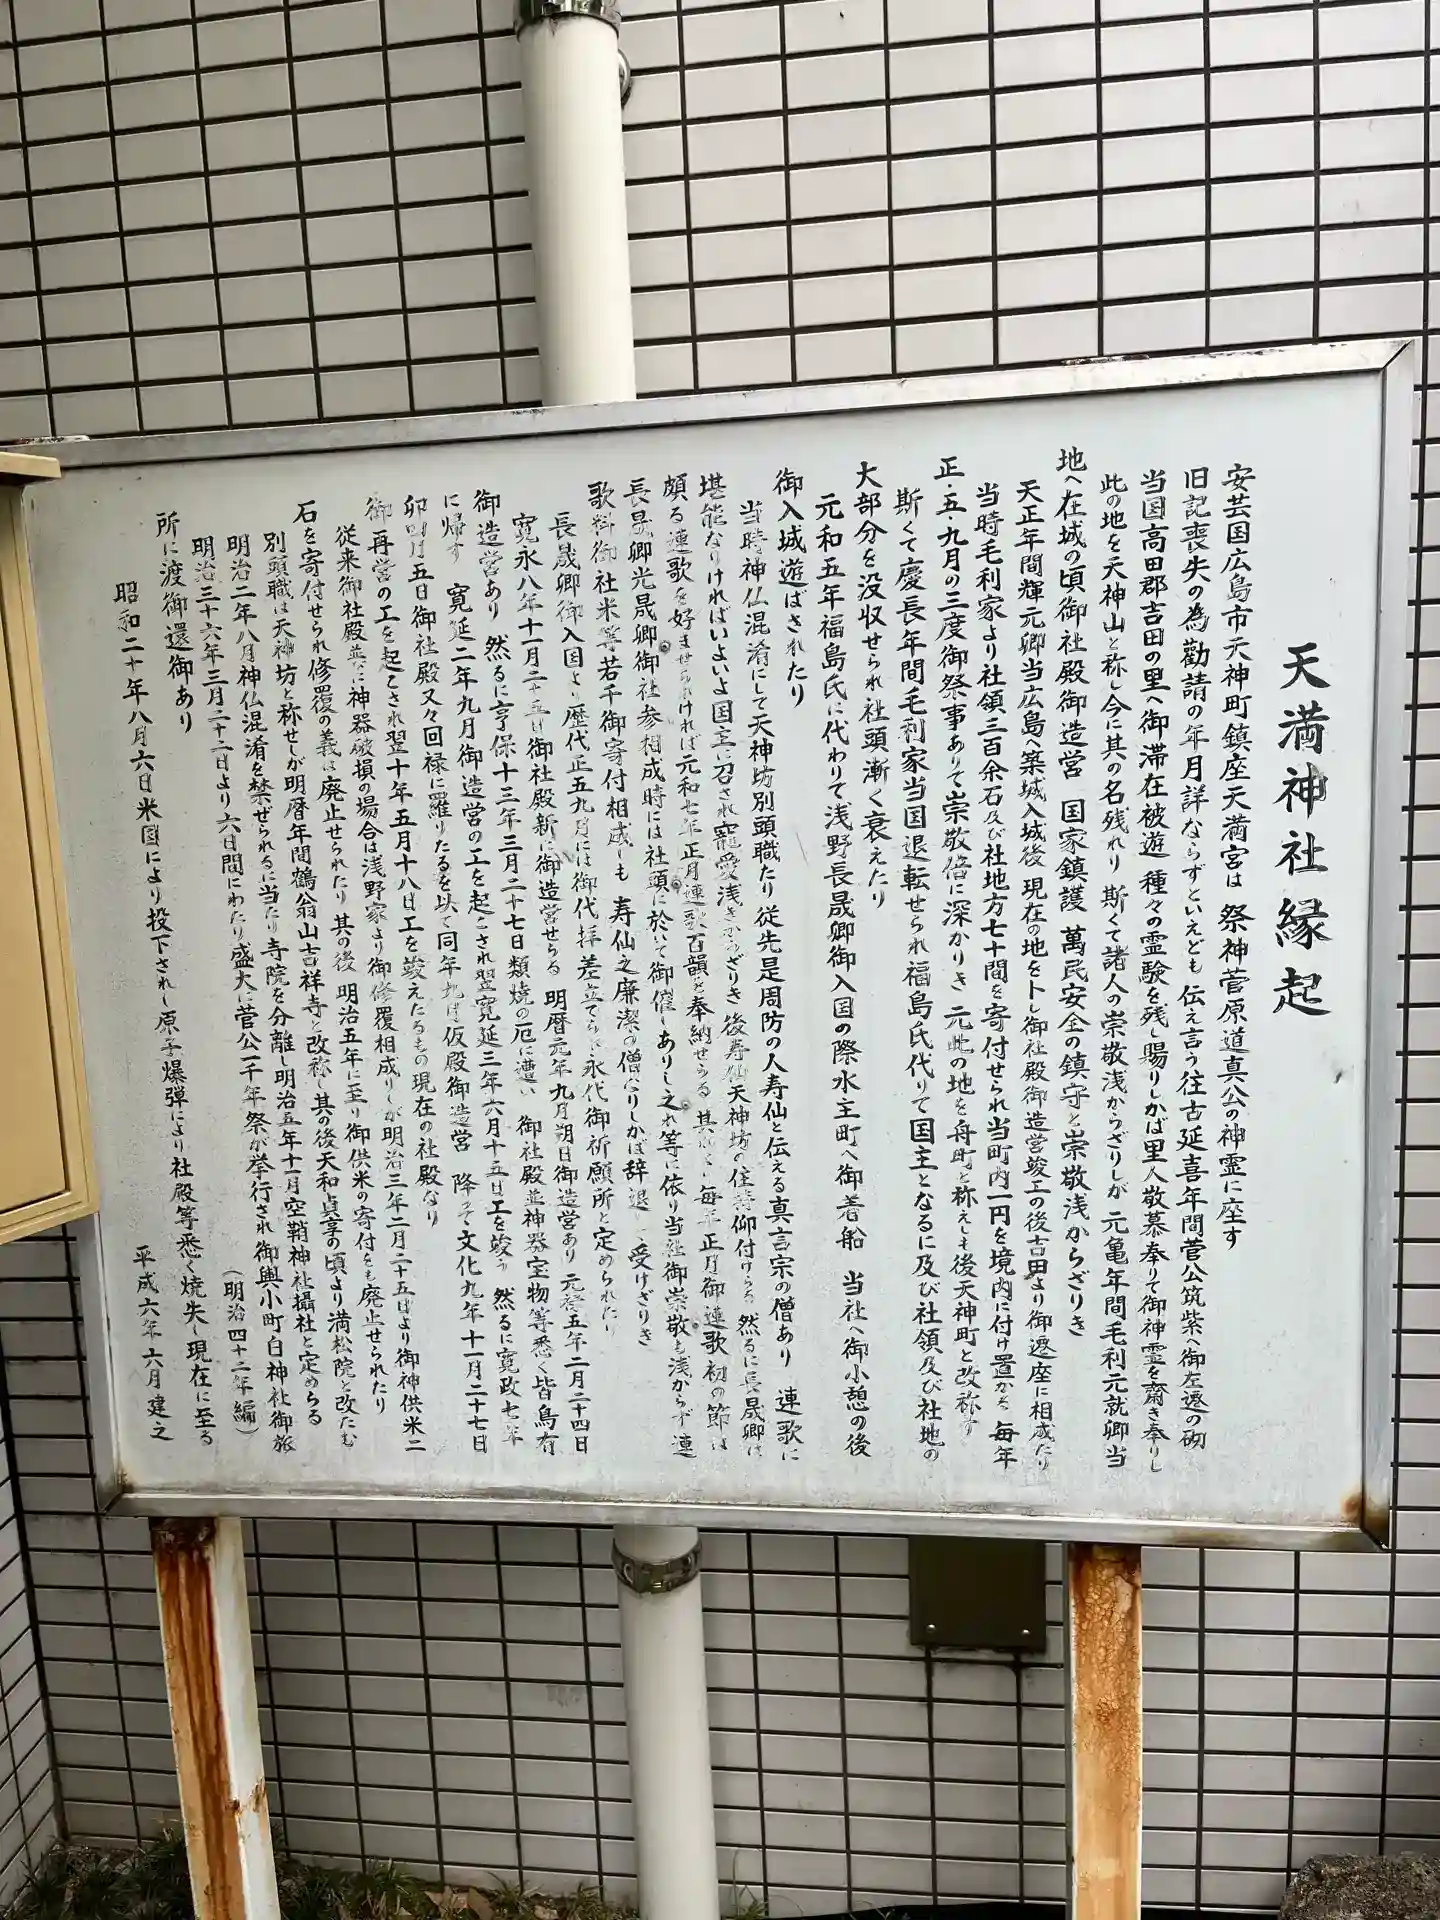 天満神社縁起
安芸国広島市天神町鎮座天満宮は 祭神菅原道真公の神霊に座す
旧記喪失の為勸請の年月詳ならずといえども 伝え言う往古延喜年間菅公筑紫へ御左遷の砌
当国高田郡吉田の里へ御滞在被遊 種々の霊験を残し賜りしかば里人敬慕奉りて御神霊を齋き奉りし
此の地を天神山と称し今に其の名残れり 斯くて諸人の崇敬浅からざりしが 元亀年間毛利元就卿当
地へ在城の頃御社殿御造営 国家鎮護 萬民安全の鎮守と崇敬浅からざりき
天正年間輝元卿当広島へ築城入城後 現在の地を卜し御社殿御造営竣工の後吉田より御遷座に相成たり
当時毛利家より社領三百余石及び社地方七十間を寄付せられ当町内一円を境内に付け置かる 毎年
正・五・九月の三度御祭事ありて崇敬倍に深かりき 元此の地を舟町と称えしも後天神町と改称す
斯くて慶長年間毛利家当国退転せられ福島氏代りて国主となるに及び社領及び社地の
大部分を没収せられ社頭漸く衰えたり
元和五年福島氏に代わりて浅野長晟卿御入国の際水主町へ御着船 当社へ御小憩の後
御入城遊ばされたり
当時神仏混淆にして天神坊別頭職たり従先是周防の人寿仙と伝える真言宗の僧あり 連歌に
堪能なりければいよいよ国主に召され寵愛浅きからざりき 後寿仙天神坊の住持仰付けらる 然るに長晟卿は
頗る連歌を好ませられければ元和七年正月連歌百韻を奉納せらる 其 毎年正月御連歌初の節は
長晟卿光晟卿御社参相成時には社頭に於いて御催しありし之れ等に依り当社御崇敬も浅からず 連
歌料御社米等若干御寄付相成しも 寿仙之廉潔の僧なりしかば辞退して受けざりき
長晟卿御入国より歴代正五九月には御代拝差立てられ永代御祈願所と定められたり
寛永八年十一月二十五日御社殿新に御造営せらる 明暦元年九月朔日御造営あり 元禄五年二月二十四日
御造営あり 然るに享保十三年三月二十七日類焼の厄に遭い 御社殿並神器宝物等悉く皆烏有
に帰す 寛延二年九月御造営の工を起こされ翌寛延三年六月十五日工を竣う 然るに寛政七年
卯四月五日御社殿又々回禄に罹りたるを以て同年九月仮殿御造営 降って文化九年十一月二十七日
御再営の工を起こされ翌十年五月十八日工を竣えたるもの現在の社殿なり
従来御社殿並に神器破損の場合は浅野家より御修覆相成りしが明治三年二月二十五日より御神供米二
石を寄付せられ修覆の義は廃止せられたり 其の後 明治五年に至り御供米の寄付をも廃止せられたり
別頭職は天神坊と称せしが明暦年間鶴翁山吉祥寺と改称し其の後天和貞享の頃より満松院と改たむ
明治二年八月神仏混淆を禁ぜられるに当たり寺院を分離し明治五年十一月空鞘神社攝社と定めらる
明治三十六年三月二十二日より六日間にわたり盛大に菅公一千年祭が挙行され御輿小町白神社御旅
所に渡御還御あり (明治四十二年編)
昭和二十年八月六日米国により投下されし原子爆弾により社殿等悉く焼失し現在に至る
平成六年六月建之